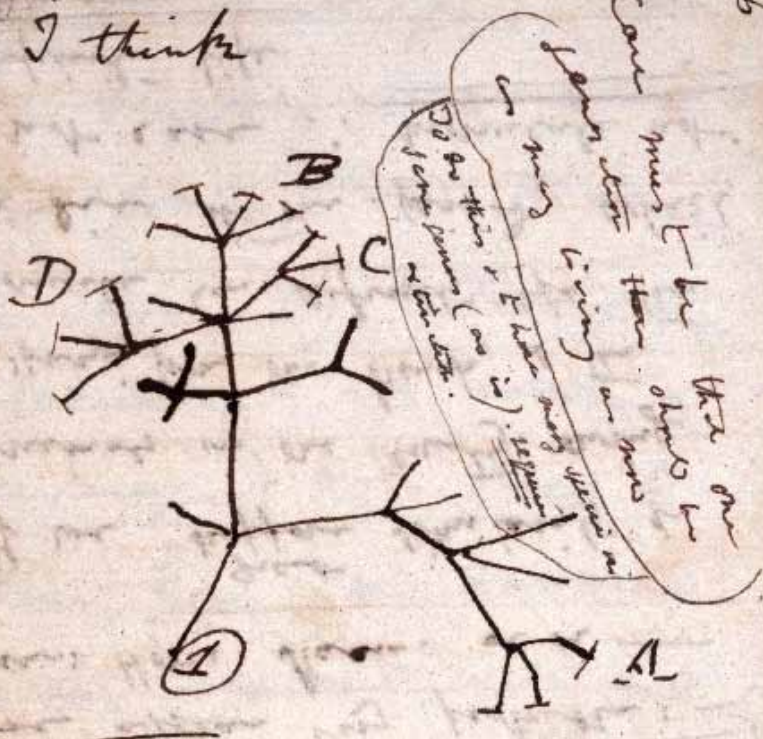 I think
B
D
C
A
1
case must be that one
generation then should be
as many living as now
To do this & to have many species in
same genus (as is). requires
extinction.